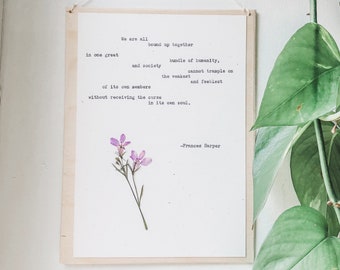 We are all
bound up together
in one great
bundle of humanity,
and society
cannot trample on
the weakest
and feeblest
of its own members
without receiving the curse
in its own soul.
-Frances Harper